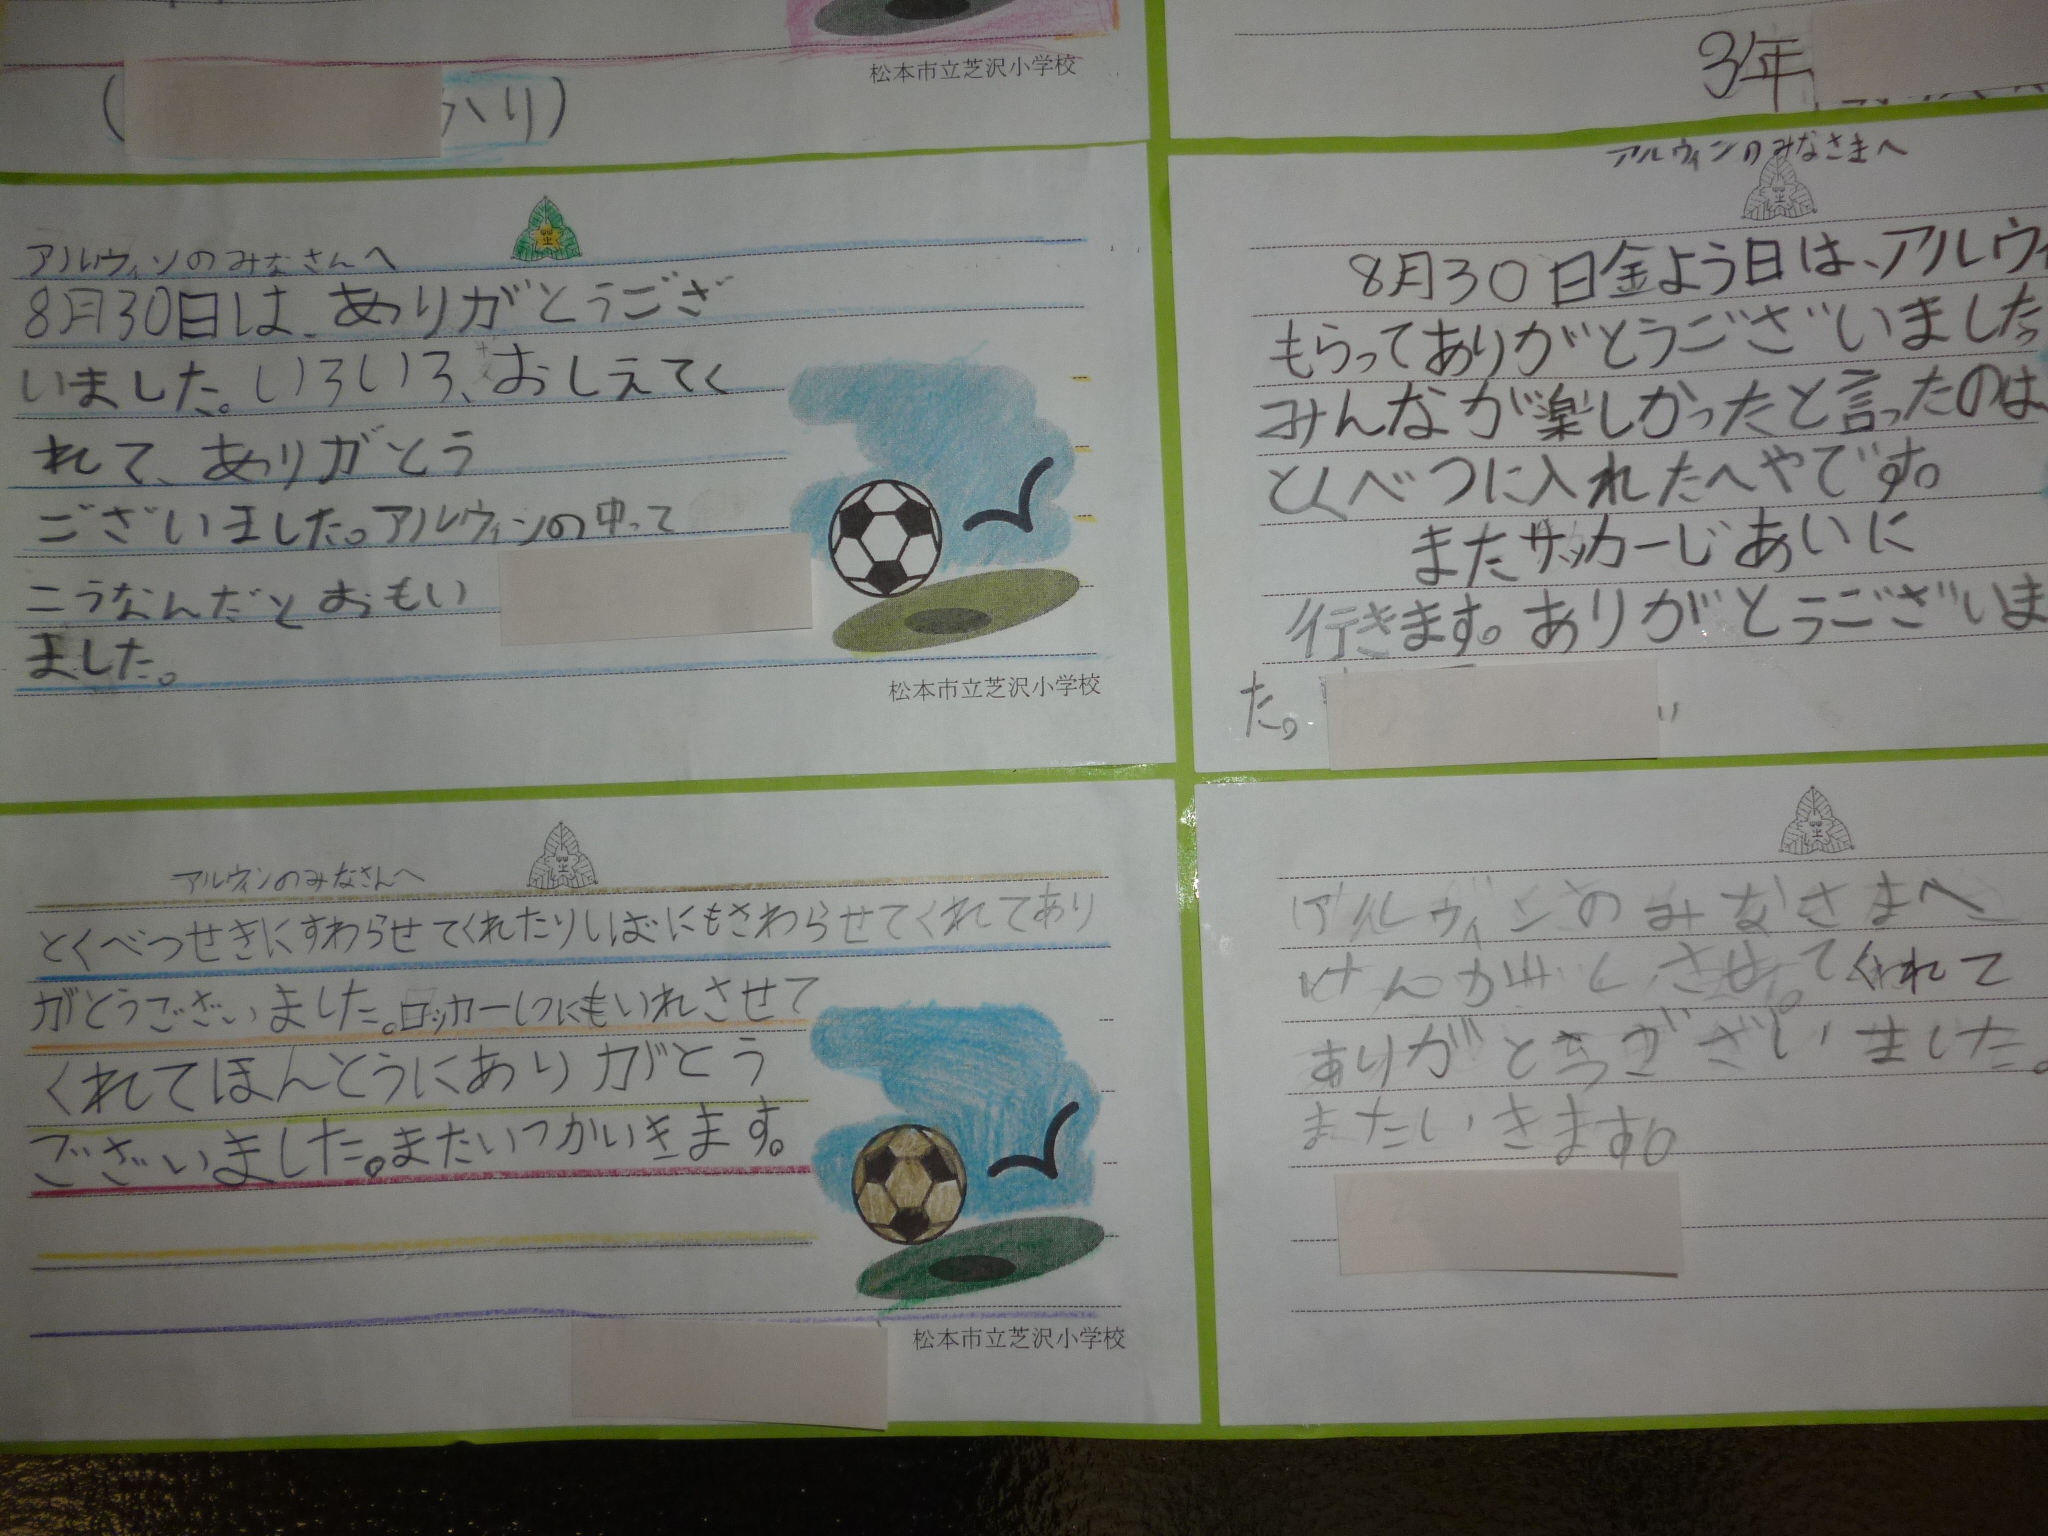 松本市立芝沢小学校
3年
アルウィンのみなさんへ
8月30日は、ありがとうござ
いました。いろいろ、おしえてく
れて、ありがとう
ございました。アルウィンの中って
こうなんだとおもい
ました。
松本市立芝沢小学校
アルウィンのみなさまへ
8月30日金よう日は、アルウィ
もらってありがとうございました
みんなが楽しかったと言ったのは
とくべつに入れたへやです。
またサッカーじあいに
行きます。ありがとうございま
た。
アルウィンのみなさんへ
とくべつせきにすわらせてくれたりしばにもさわらせてくれてあり
がとうございました。ロッカーしつにもいれさせて
くれてほんとうにありがとう
ございました。またいつかいきます。
松本市立芝沢小学校
アルウィンのみなさまへ
けんがくさせてくれて
ありがとうございました。
またいきます。